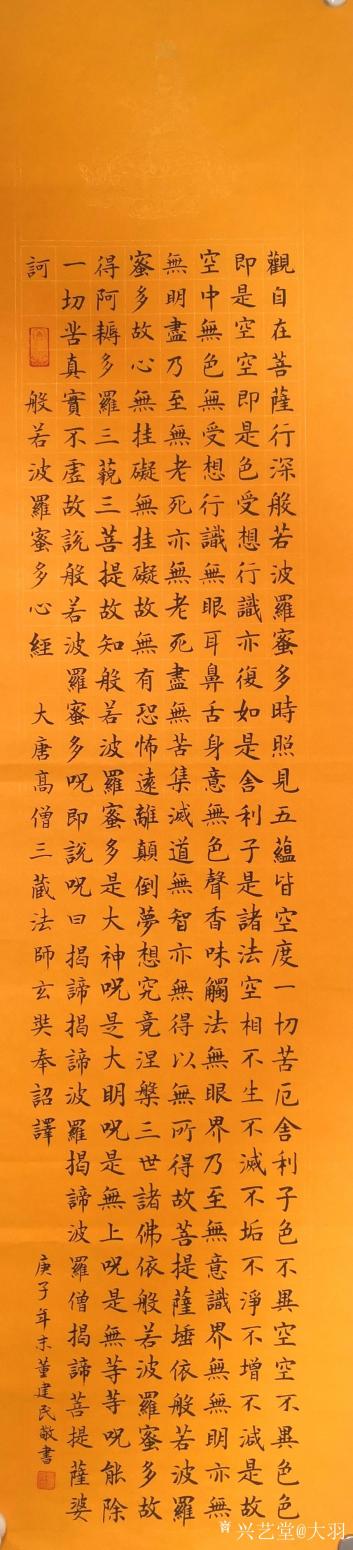 觀自在菩薩行深般若波羅蜜多時照見五蘊皆空度一切苦厄舍利子色不異空空不異色色
即是空空即是色受想行識亦復如是舍利子是諸法空相不生不滅不垢不淨不增不減是故
空中無色無受想行識無眼耳鼻舌身意無色聲香味觸法無眼界乃至無意識界無無明亦無
無明盡乃至無老死亦無老死盡無苦集滅道無智亦無得以無所得故菩提薩埵依般若波羅
蜜多故心無挂礙無挂礙故無有恐怖遠離顛倒夢想究竟涅槃三世諸佛依般若波羅蜜多故
得阿耨多羅三藐三菩提故知般若波羅蜜多是大神呪是大明呪是無上呪是無等等呪能除
一切苦真實不虛故說般若波羅蜜多呪即說呪曰揭諦揭諦波羅揭諦波羅僧揭諦菩提薩婆
訶 般若波羅蜜多心經 大唐高僧三藏法師玄奘奉詔譯
庚子年末董建民敬書
兴艺堂@大羽